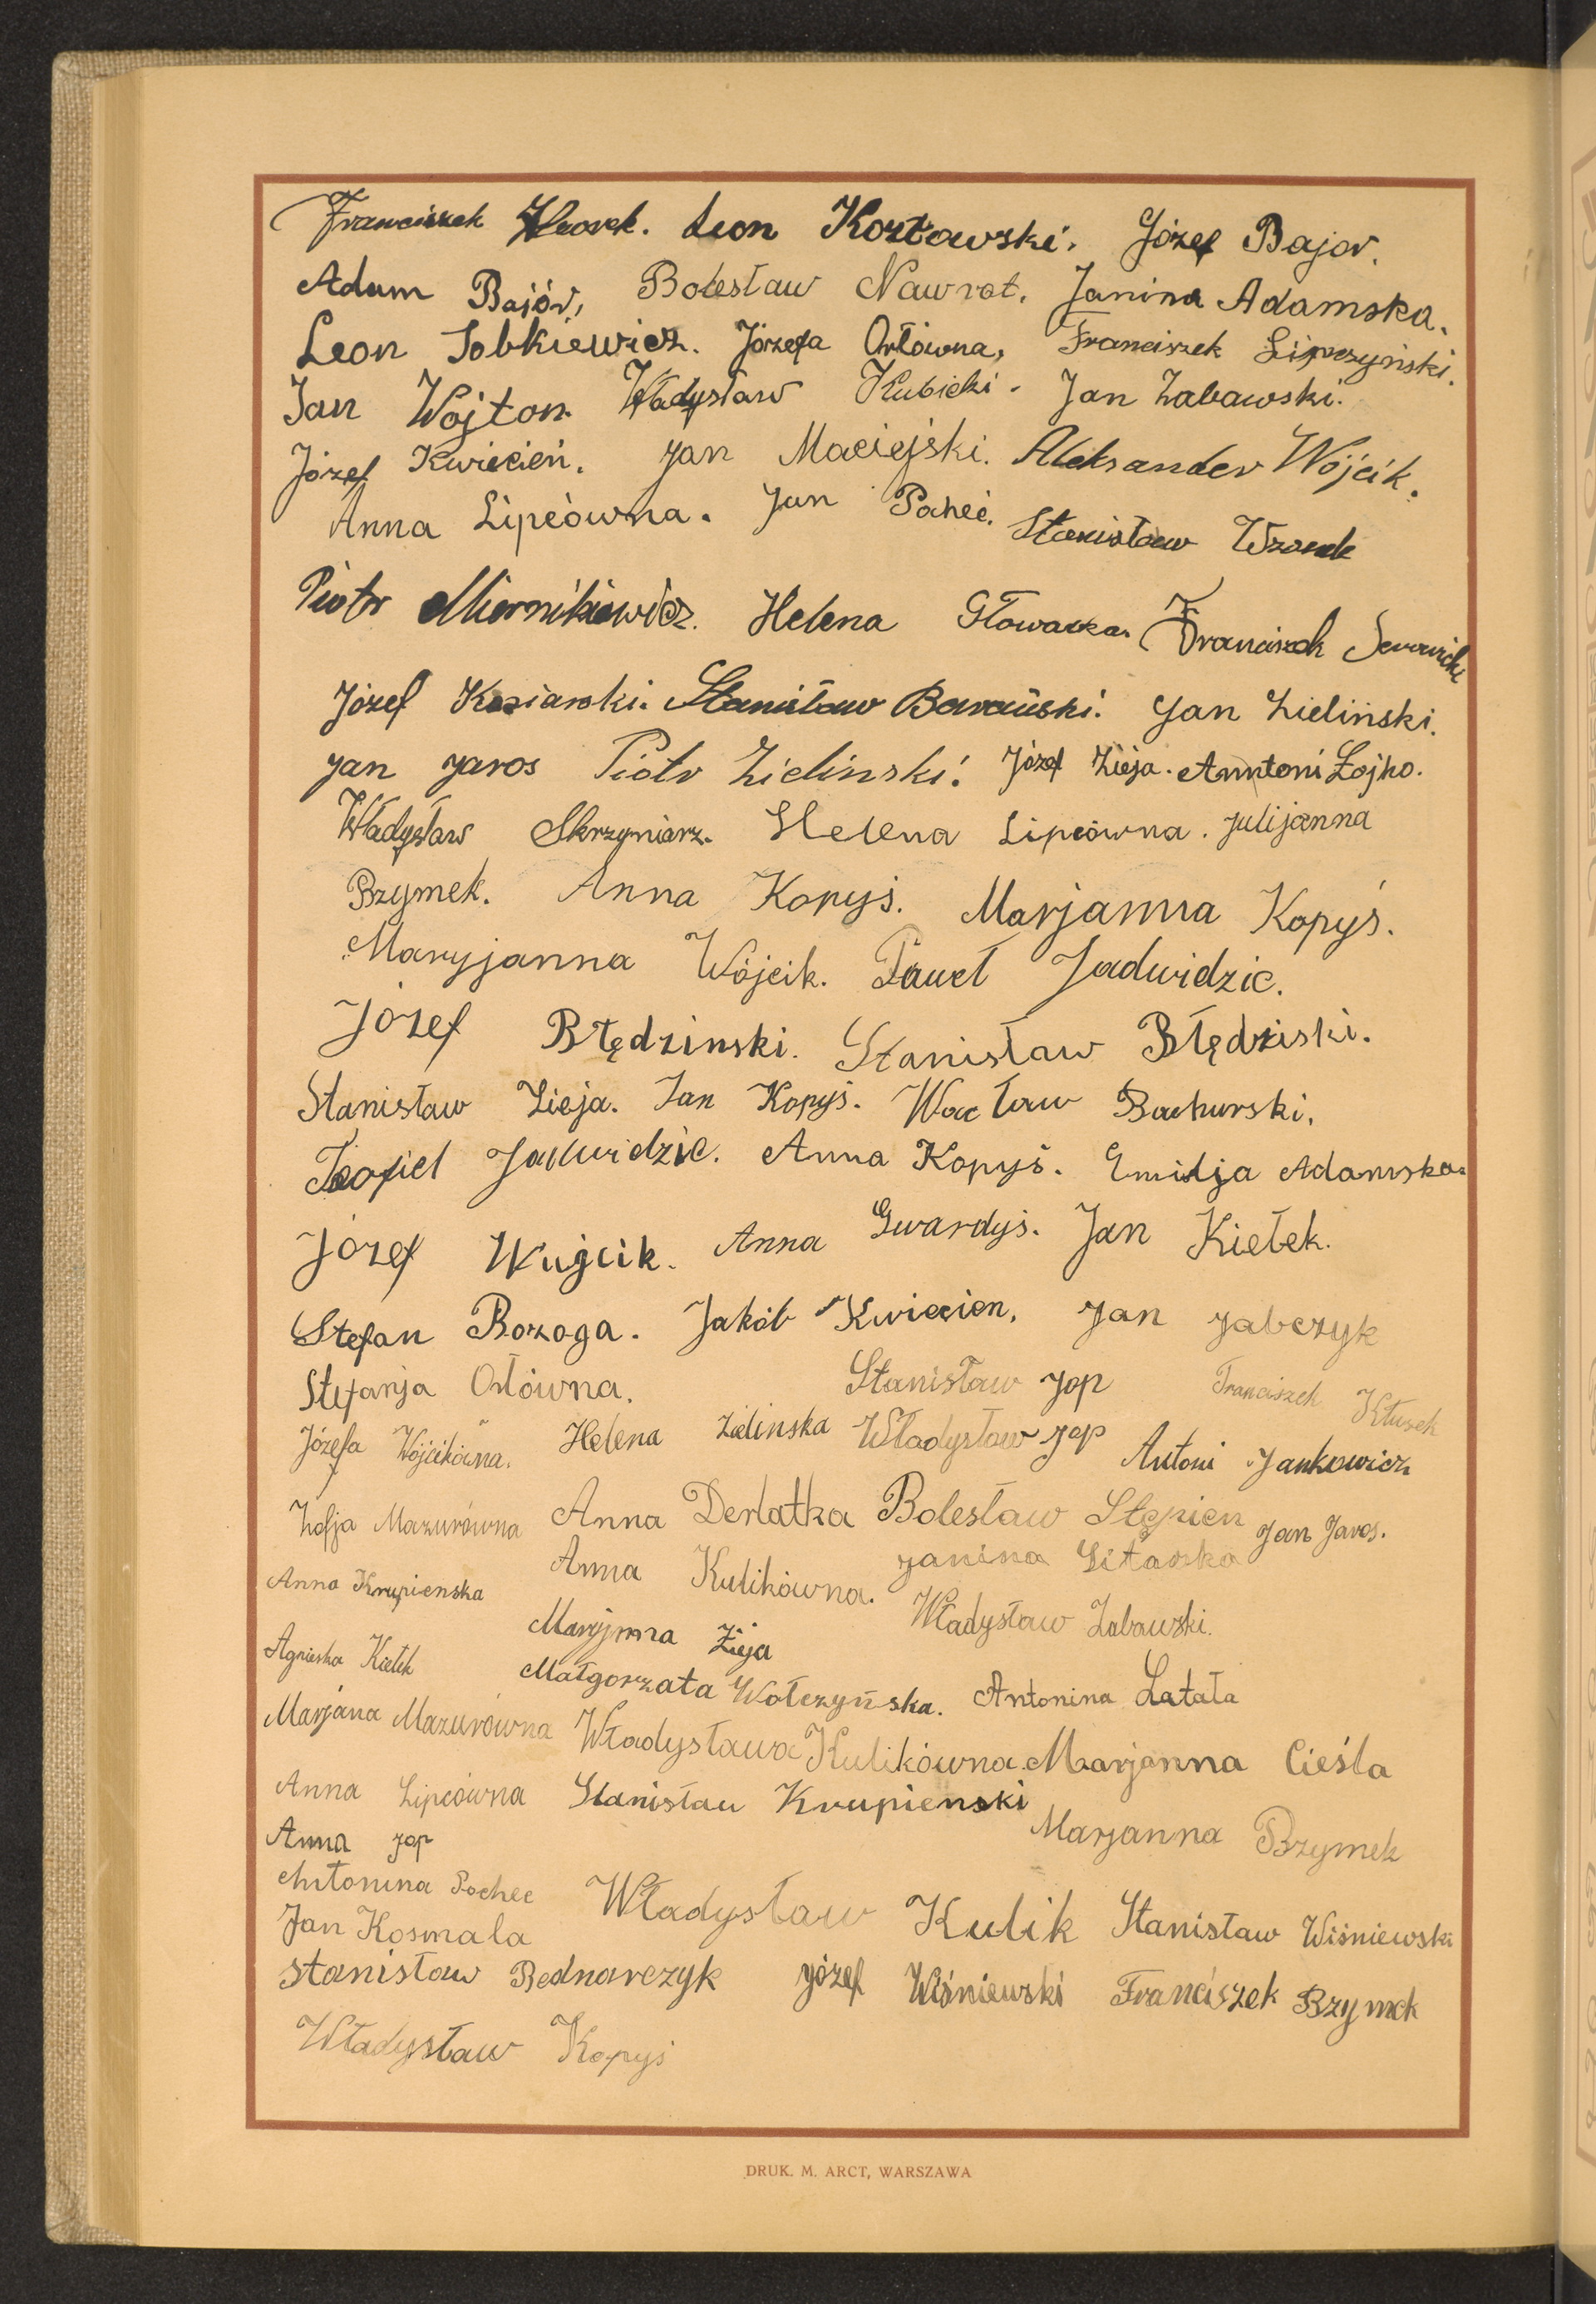 Franciszek Leon Kozłowski. Józef Bajor.
Adam Bajór, Bolesław Nawrot, Janina Adamska.
Leon Sobkiewicz. Józefa Orłówna, Franciszek Lipczyński.
Jan Wojton. Władysław Kubicki. Jan Zabawski.
Józef Kwiecień. Jan Maciejski. Aleksander Wójcik.
Anna Lipcówna. Jan Stanisław
Piotr Miernikiewicz. Helena Głowacka. Franciszek
Józef Stanisław Barański. Jan Zieliński.
Jan Jaros Piotr Zielinski. Józef Zieja. Anntoni Łojko.
Władysław Skrzyniarz. Helena Lipcówna. Julijanna
Bzymek. Anna Kopyś. Marjanna Kopyś.
Maryjanna Wójcik. Paweł Jadwidzic.
Józef Błędzinski. Stanisław Błędziski.
Stanisław Zieja. Jan Kopyś. Wacław Bachurski.
Teofiel Jadwidzic. Anna Kopyś. Emilja Adamska.
Józef Wujcik. Anna Gwardyś. Jan Kiełek.
Stefan Bozoga. Jakób Kwiecien. Jan Jabczyk
Stefanja Orłówna. Stanisław Jop Franciszek Kłusek
Józefa Wójcikówna. Helena Zielinska Władysław Jop Antoni Jankowicz
Zofja Mazurówna Anna Derlatka Bolesław Stępien Jan Jaros.
Anna Krupienska Anna Kulikówna. Janina
Agnieska Kiełek Maryjnna Zieja Władysław Zabawski.
Małgorzata Wołczyńska. Antonina Latała
Marjana Mazurówna Władysława Kulikówna. Marjanna Cieśla
Anna Lipcówna Stanisław Krupienski
Anna Jop Marjanna Bzymek
Antonina Pochec
Jan Kosmala Władysław Kulik Stanisław Wiśniewski
Stanisław Bednarczyk Józef Wiśniewski Franciszek Bzymek
Władysław Kopyś
DRUK. M. ARCT, WARSZAWA